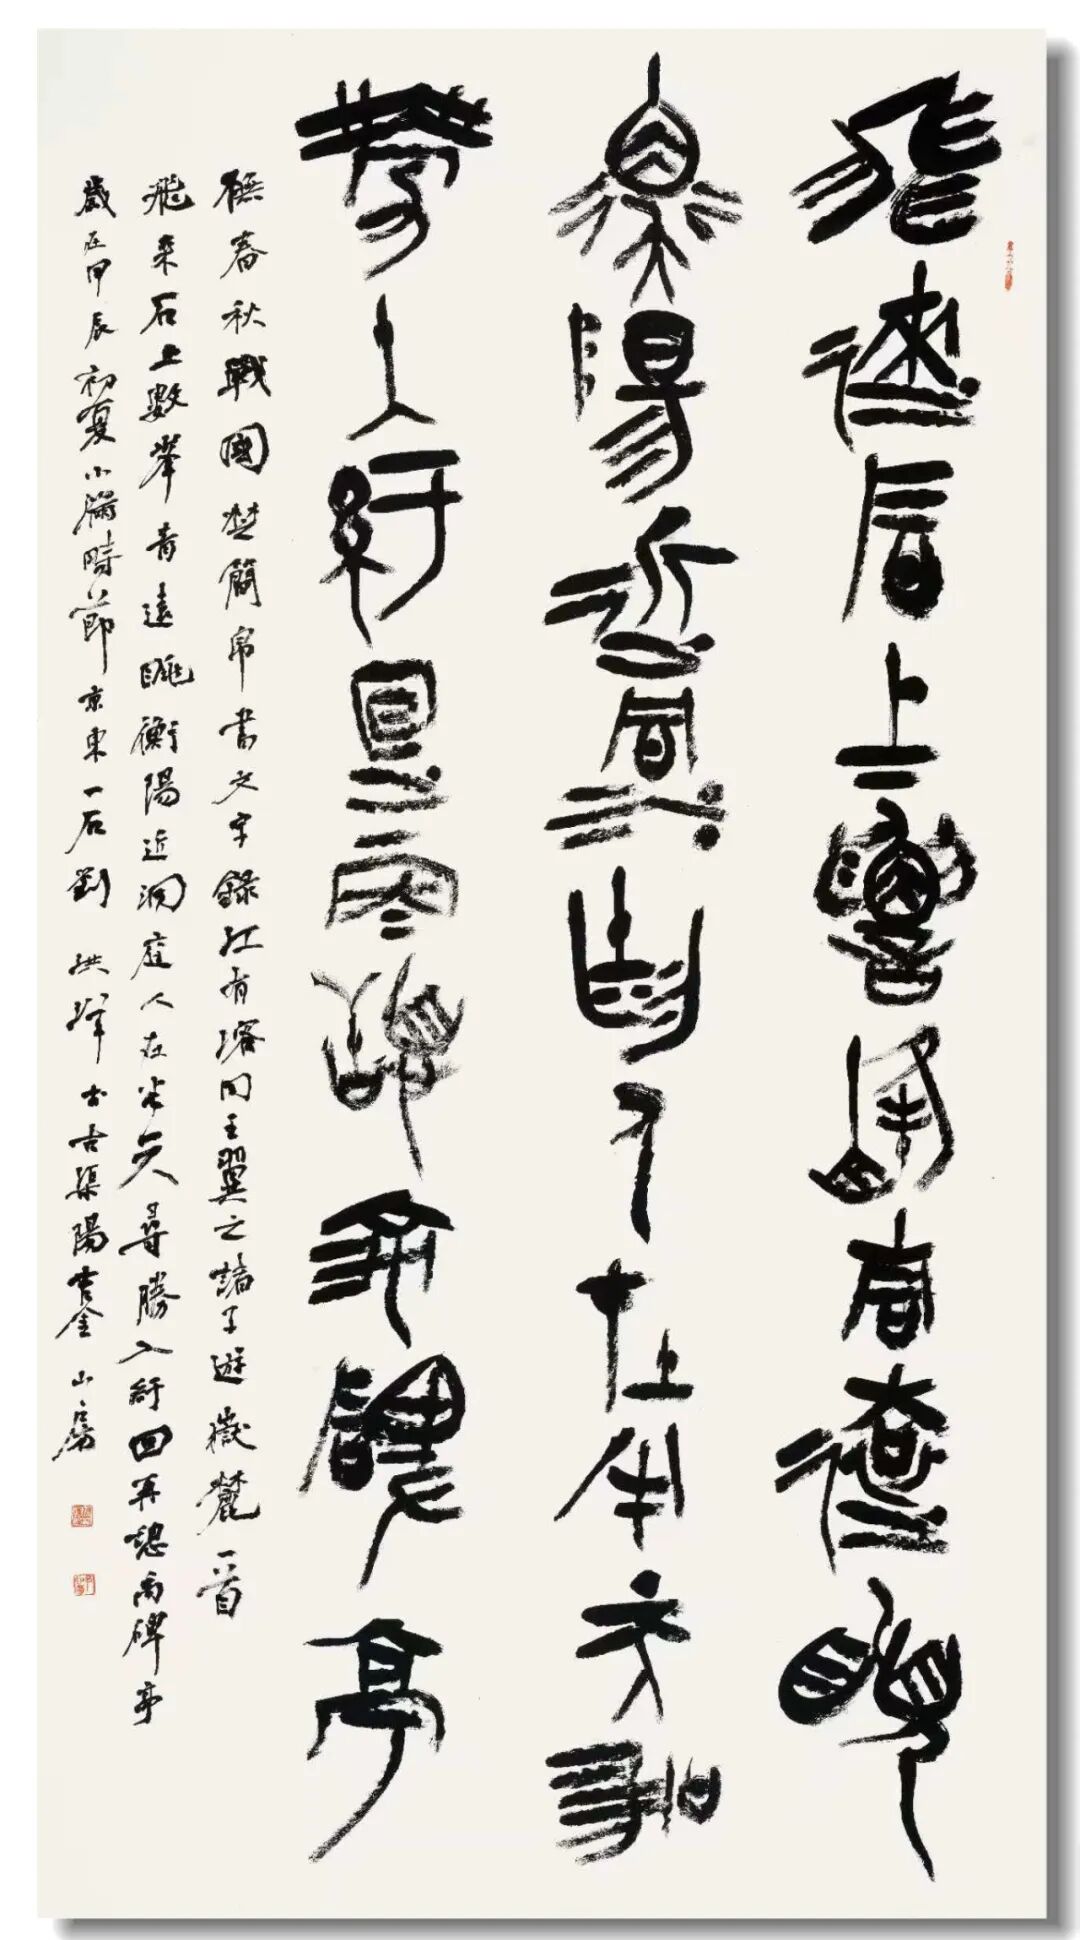 飛來石上數峯青遠眺
衡陽近洞庭人在半天尋
勝入紆回再憩禹碑亭
橅春秋戰國楚簡帛書文字錄江有溶同王翼之諸子遊嶽麓一首
飛来石上數峯青遠眺衡陽近洞庭人在半天尋勝入紆回再憩禹碑亭
歲在甲辰初夏小滿時節京東一石劉洪洋於古渠陽吉金山房